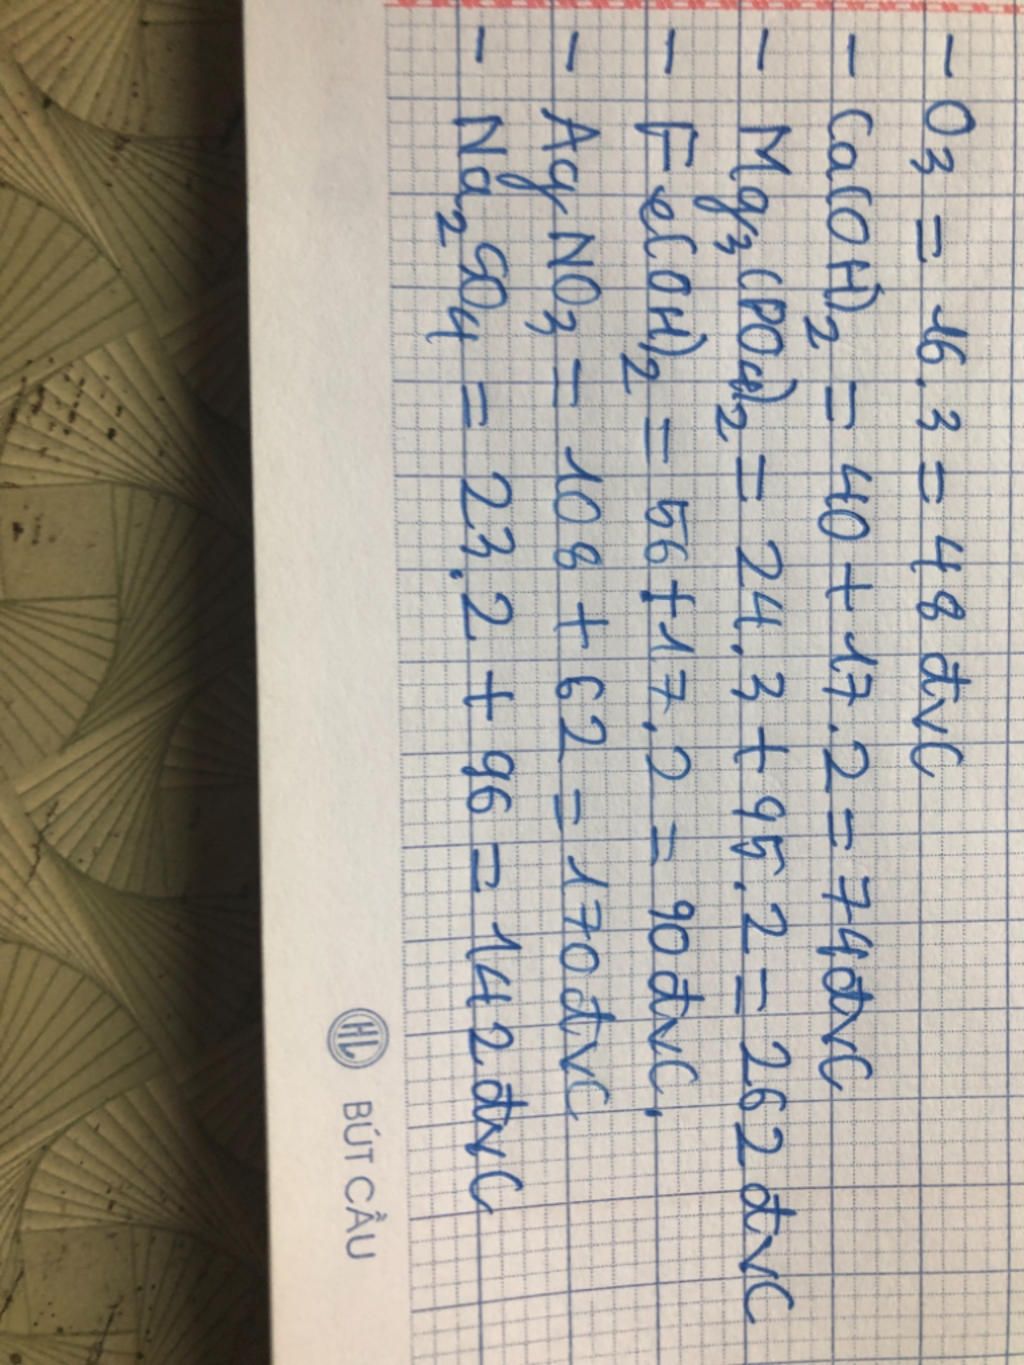 - O3 = 16.3 = 48 đvC
- Ca(OH)2 = 40 + 17.2 = 74đvC
- Mg3(PO4)2 = 24.3 + 95.2 = 262 đvC
- Fe(OH)2 = 56 + 17.2 = 90đvC.
- AgNO3 = 108 + 62 = 170đvC
- Na2SO4 = 23.2 + 96 = 142đvC
HL BÚT CẦU